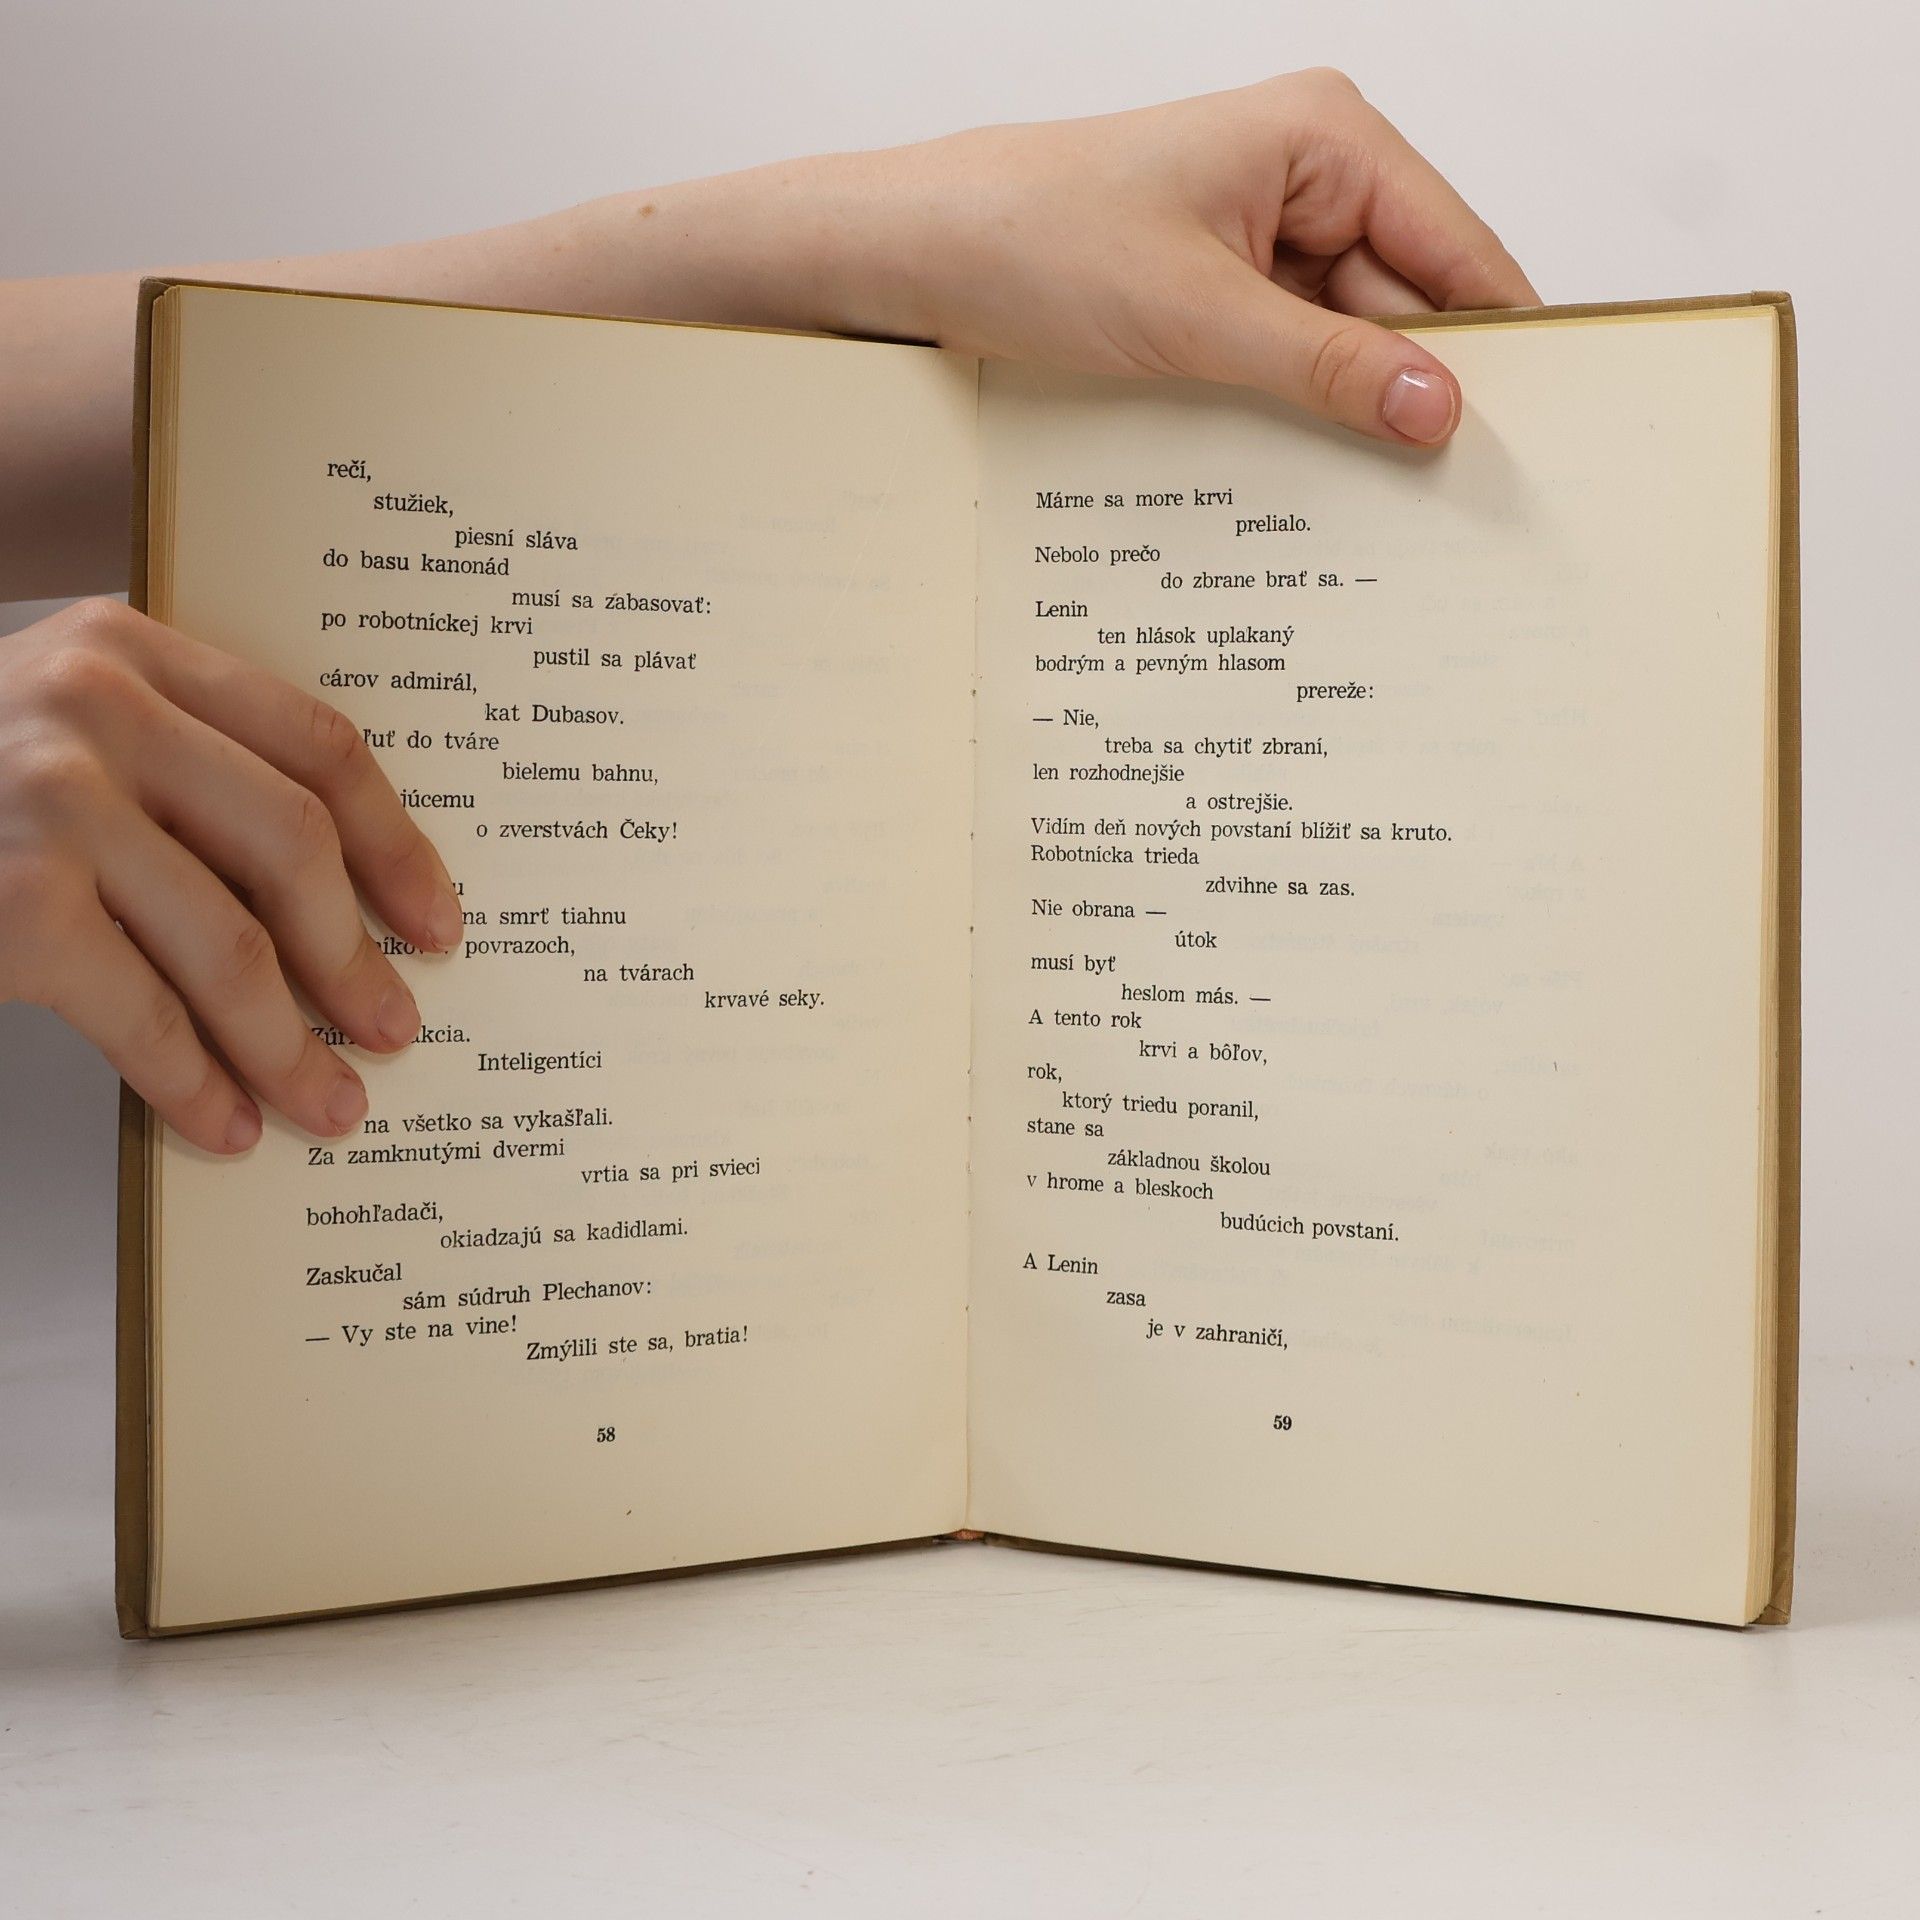 rečí,
stužiek,
piesní sláva
do basu kanonád
musí sa zabasovať:
po robotníckej krvi
pustil sa plávať
cárov admirál,
kat Dubasov.
do tváre
bielemu bahnu,
o zverstvách Čeky!
na smrť tiahnu
povrazoch,
na tvárach
krvavé seky.
Inteligentíci
na všetko sa vykašľali.
Za zamknutými dvermi
vrtia sa pri svieci
bohohľadači,
okiadzajú sa kadidlami.
Zaskučal
sám súdruh Plechanov:
— Vy ste na vine!
Zmýlili ste sa, bratia!
58
Márne sa more krvi
prelialo.
Nebolo prečo
do zbrane brať sa. —
Lenin
ten hlások uplakaný
bodrým a pevným hlasom
prereže:
— Nie,
treba sa chytiť zbraní,
len rozhodnejšie
a ostrejšie.
Vidím deň nových povstaní blížiť sa kruto.
Robotnícka trieda
zdvihne sa zas.
Nie obrana —
útok
musí byť
heslom más. —
A tento rok
krvi a bôľov,
rok,
ktorý triedu poranil,
stane sa
základnou školou
v hrome a bleskoch
budúcich povstaní.
A Lenin
zasa
je v zahraničí,
59